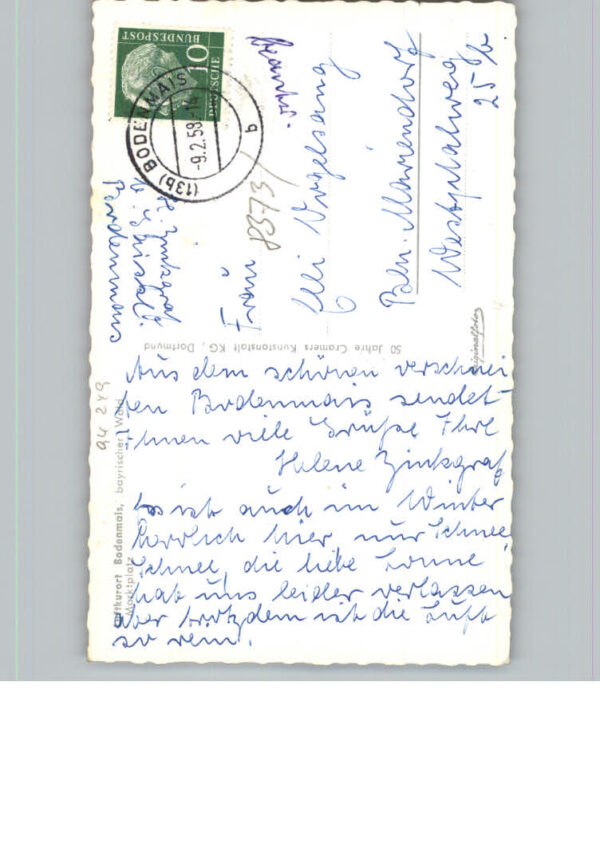 DEUTSCHE
BUNDESPOST
10
(13b) BODENMAIS
-9.2.59-14
b
8373
Frln
Elli Vogelsang
Bln. Mariendorf
Westphalweg
25 b.
H. Zinkgraf
Bodenmais
50 Jahre Cramers Kunstanstalt KG., Dortmund
94 249
Luftkurort Bodenmais, bayrischer Wald
Marktplatz
Aus dem schönen verschnei
ten Bodenmais sendet
Ihnen viele Grüße Ihre
Helene Zinkgraf
Es ist auch im Winter
herrlich hier nur Schnee
Schnee, die liebe Sonne
hat uns leider verlassen
aber trotzdem ist die Luft
so rein.